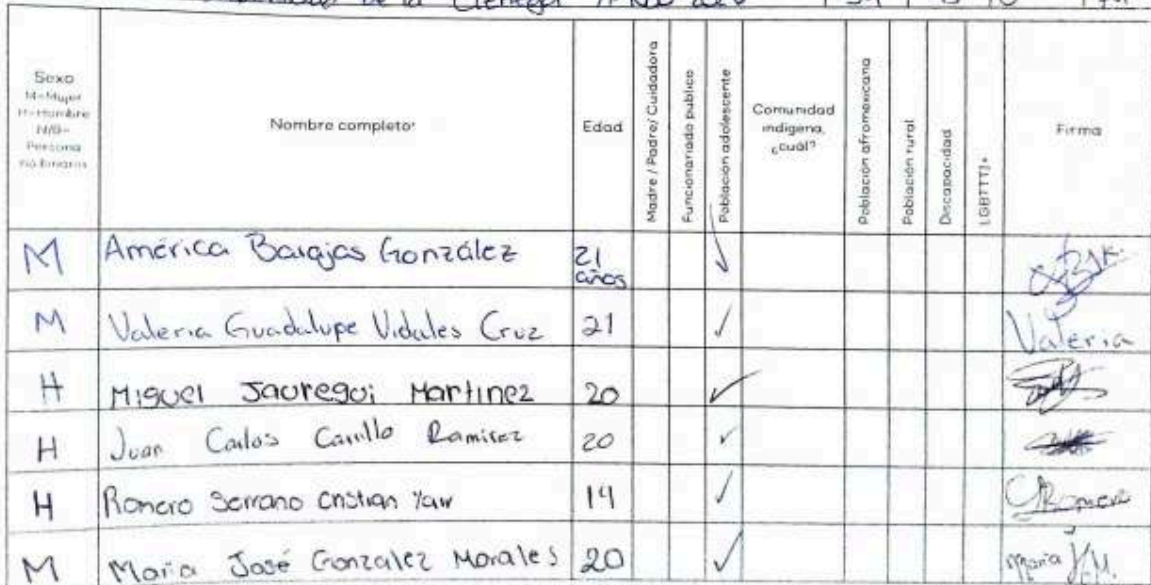 de la Cienega
Sexo
M=Mujer
H=Hombre
N/B=
Persona
no binaria
Nombre completo
Edad
Madre / Padre/ Cuidadora
Funcionariado publico
Población adolescente
Comunidad
indígena,
¿cuál?
Población afromexicana
Población rural
Discapacidad
LGBTTTI+
Firma
M América Barajas González 21
años
M Valeria Guadalupe Vidales Cruz 21 ✓ Valeria
H Miguel Jauregui Martinez 20 ✓
H Juan Carlos Carrillo Ramirez 20 ✓
H Romero Serrano Cristian 19 ✓ CRomero
M Maria José Gonzalez Morales 20 ✓ Maria